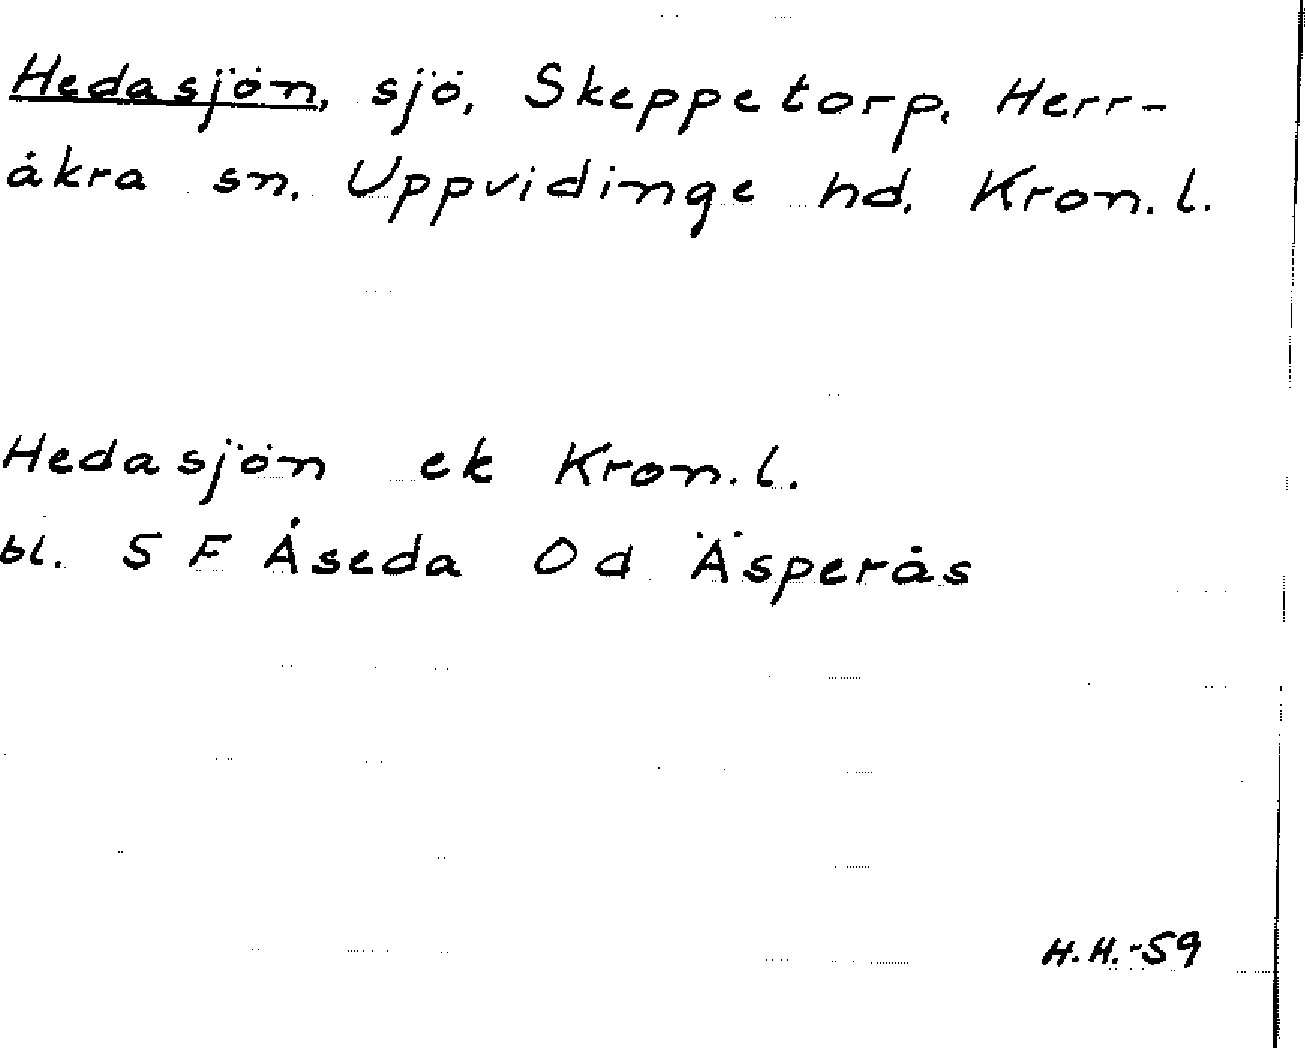 Hedasjön, sjö, Skeppetorp, Herr-
åkra sn. Uppvidinge hd. Kron. l.
Hedasjön ek Kron. l.
bl. 5 F Åseda 0 d Äsperås
H.H.-59